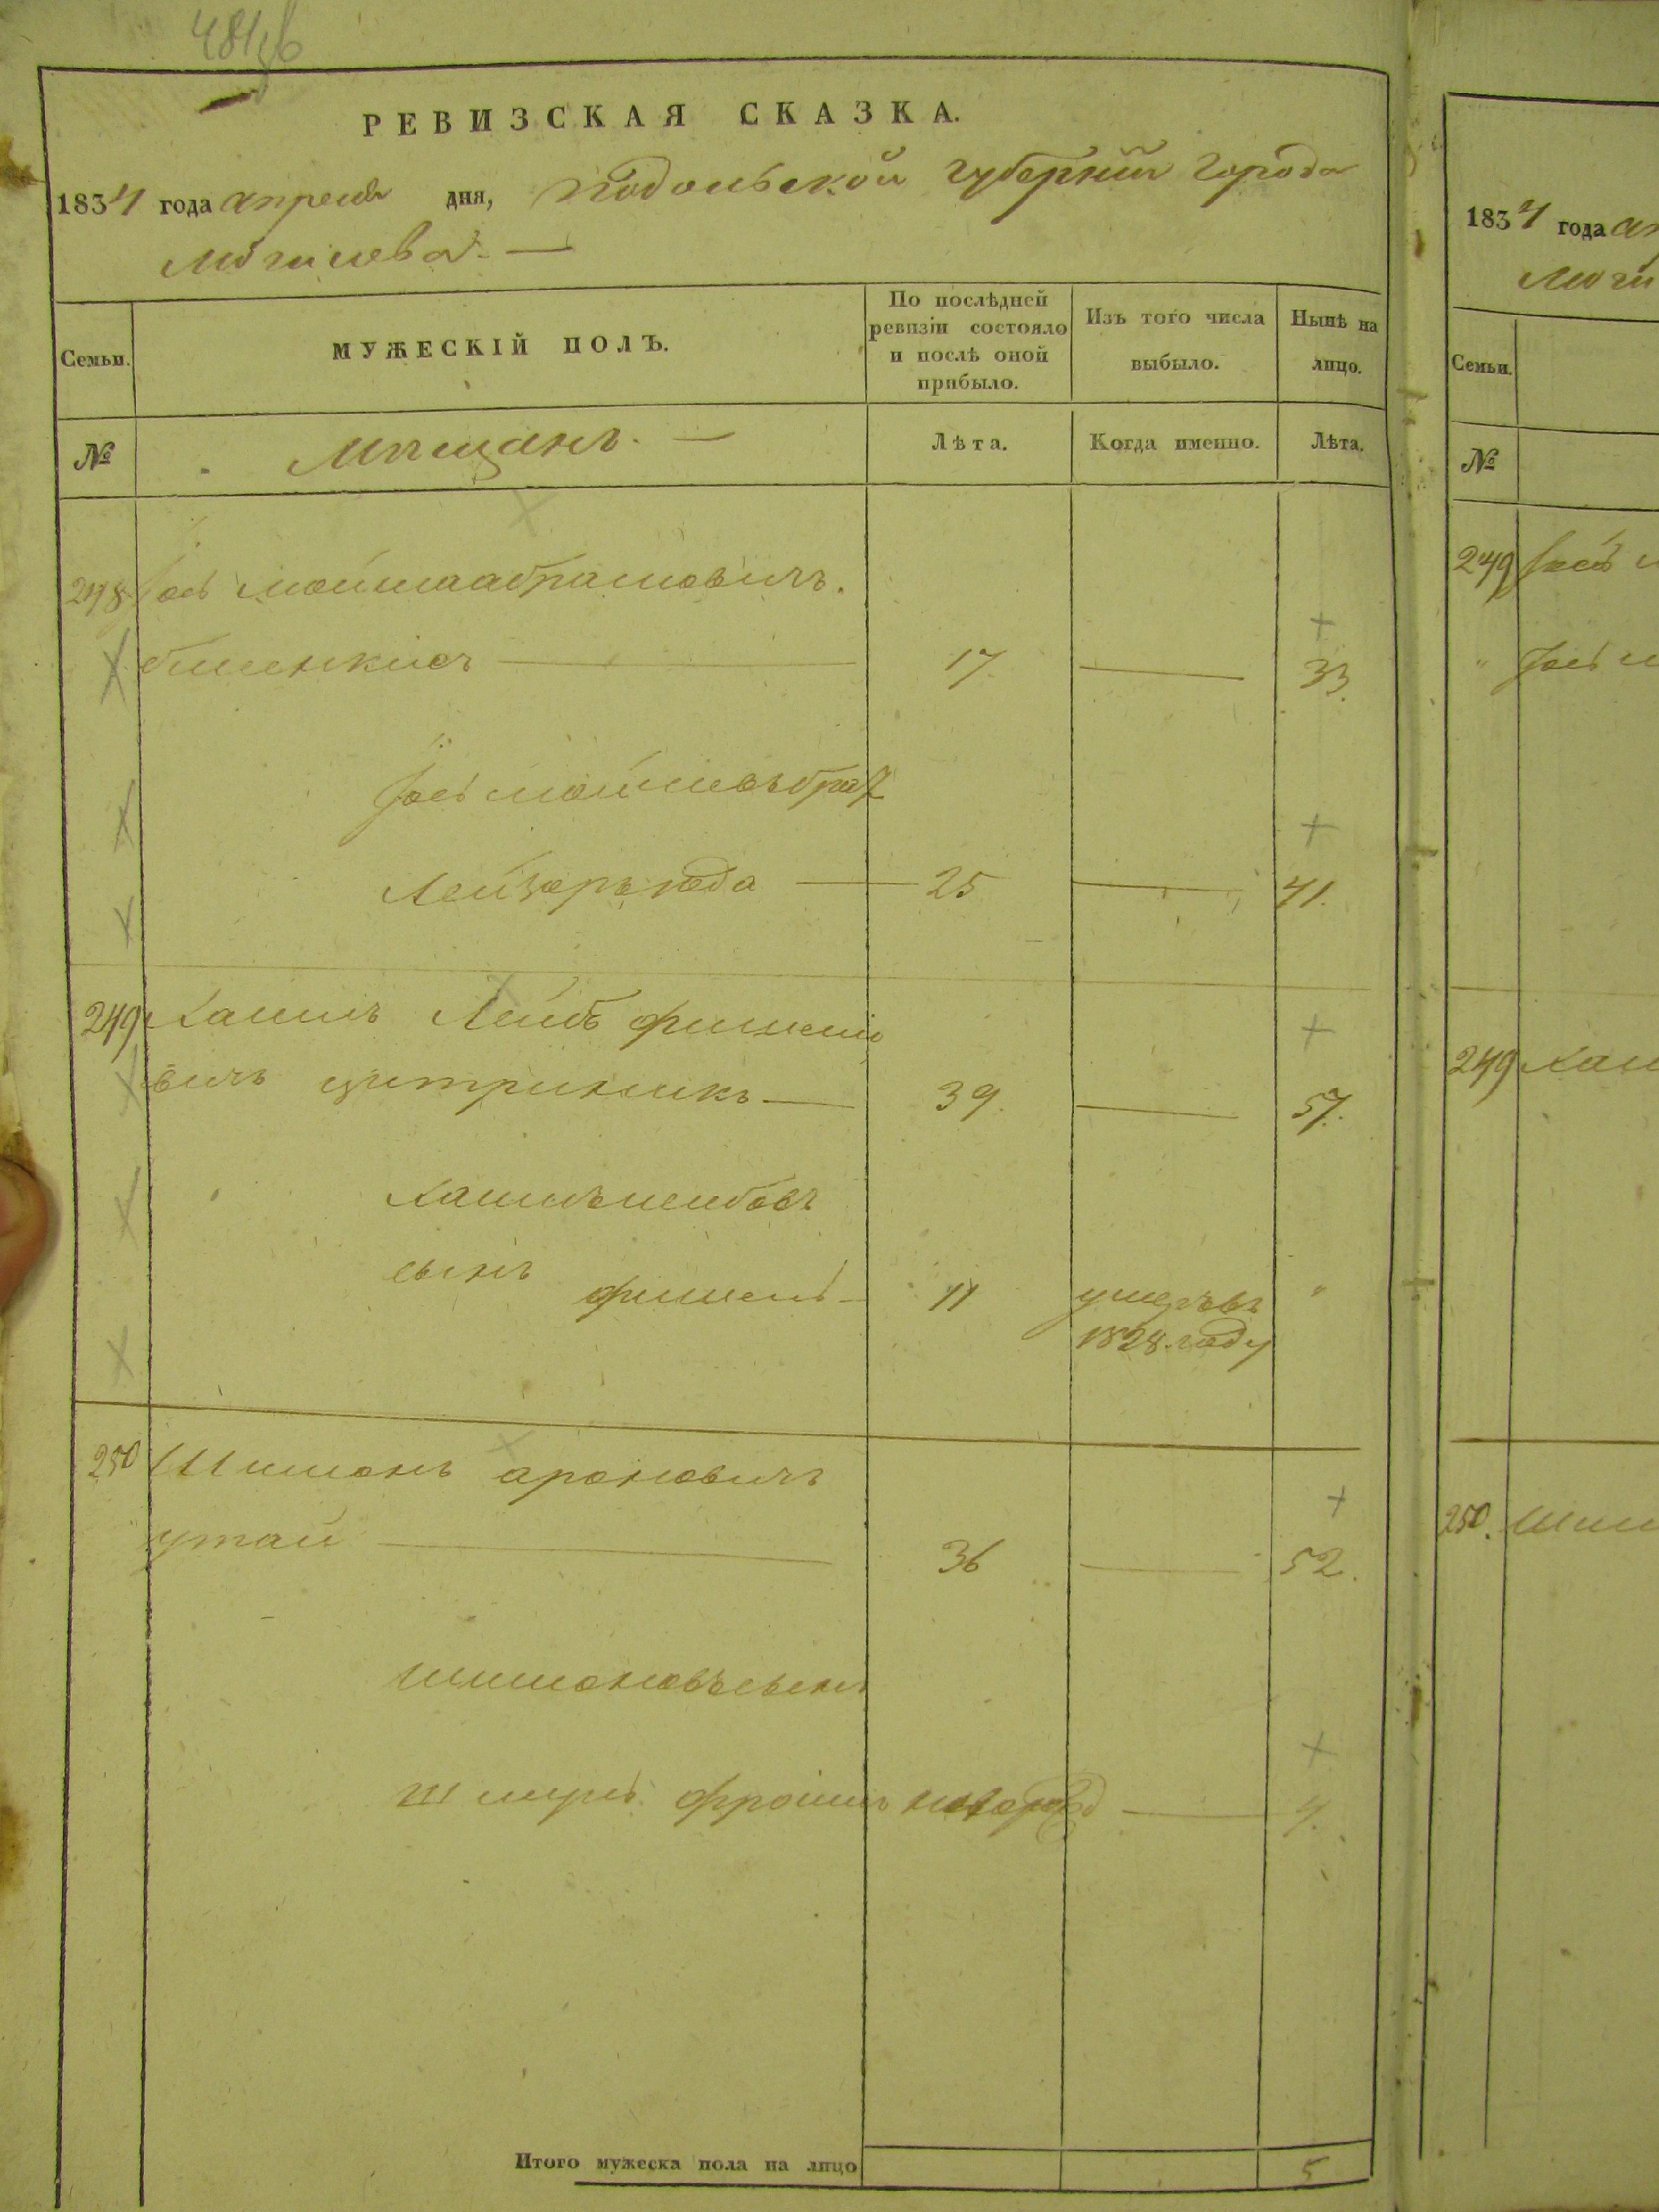 РЕВИЗСКАЯ СКАЗКА.
1834 года апреля дня, Подольской губернии города
Могилева. —
Семьи.
МУЖЕСКІЙ ПОЛЪ.
По послѣдней ревизіи состояло и послѣ оной прибыло.
Изъ того числа выбыло.
Нынѣ на лицо.
№
Мѣщанъ. —
Лѣта.
Когда именно.
Лѣта.
248 Іось Мошкаабрамовичъ.
17. — 33.
Іось братъ
Лейзоръ — 25 — 41.
249 Хаимъ Лейбъ Фишеле
вичъ Цитринникъ — 39. — 57.
Хаимълейбовъ
сынъ
Фишель — 11 умеръ въ "
1828. году
250 Шимонъ Ароновичъ
Утай — 36 — 52.
Шимоновъ сынъ
Шмуль Фроимъ новорож — 4.
Итого мужеска пола на лицо 5
1834 года ап
Моги
Семьи.
№
249 Іось
" Іось
249 Хаи
250. Шим